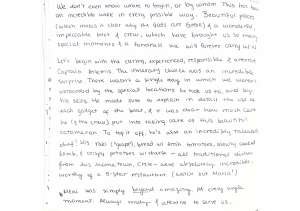 We don't even know where to begin, or by whom. This has been
an incredible week in every possible way. Beautiful places
(which makes it clear why the gods got greedy) & a wonderful,
impeccable boat & crew, which have brought us so many
special moments & a honeymoon we will forever carry with us
Let's begin with the caring, experienced, responsible &
Captain The itinerary choice was an incredible
surprise. There wasn't a single day in which we weren't
astounded by the special locations he took us to and by
his sea. He made sure to explain in detail the use of
each gadget of the boat, & it was clear how much care
he (& the crew) put into taking care of this beautiful
catamaran. To top it off, he's also an incredibly talented
chef! His fish (grouper), bread w/ fresh tomatoes, slowly cooked
lamb, & crispy potatoes w/ cheese - all traditional dishes
from his home town, Crete - were absolutely incredible,
worthy of a 5-star restaurant (watch out Mario!)
was simply beyond amazing. At every single
moment. Always ready & to serve us.